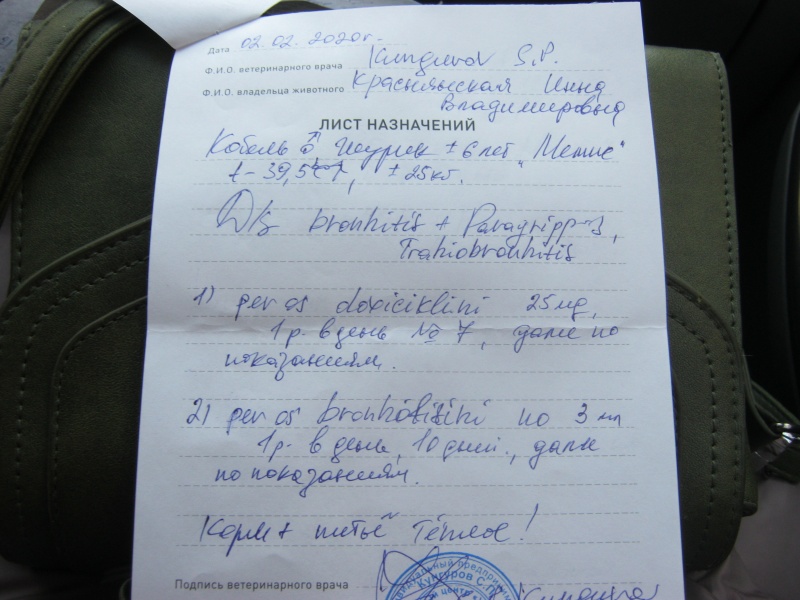 Дата 02.02.2020г.
Ф.И.О. ветеринарного врача Kungurov S.P.
Ф.И.О. владельца животного Инна
Владимировна
ЛИСТ НАЗНАЧЕНИЙ
Кобель ♂ ± 6 лет "Метис"
t - 39,5 ± 25кг.
D/s bronhitis + Paragripp-s,
Trahiobronhitis
1) per os doxiciklini 25 mg,
1 р. в день № 7, далее по
показаниям.
2) per os по 3 мл
1р. в день, 10 дней., далее
по показаниям.
Корм + питьё тёплое!
Подпись ветеринарного врача
Кунгуров С.П.